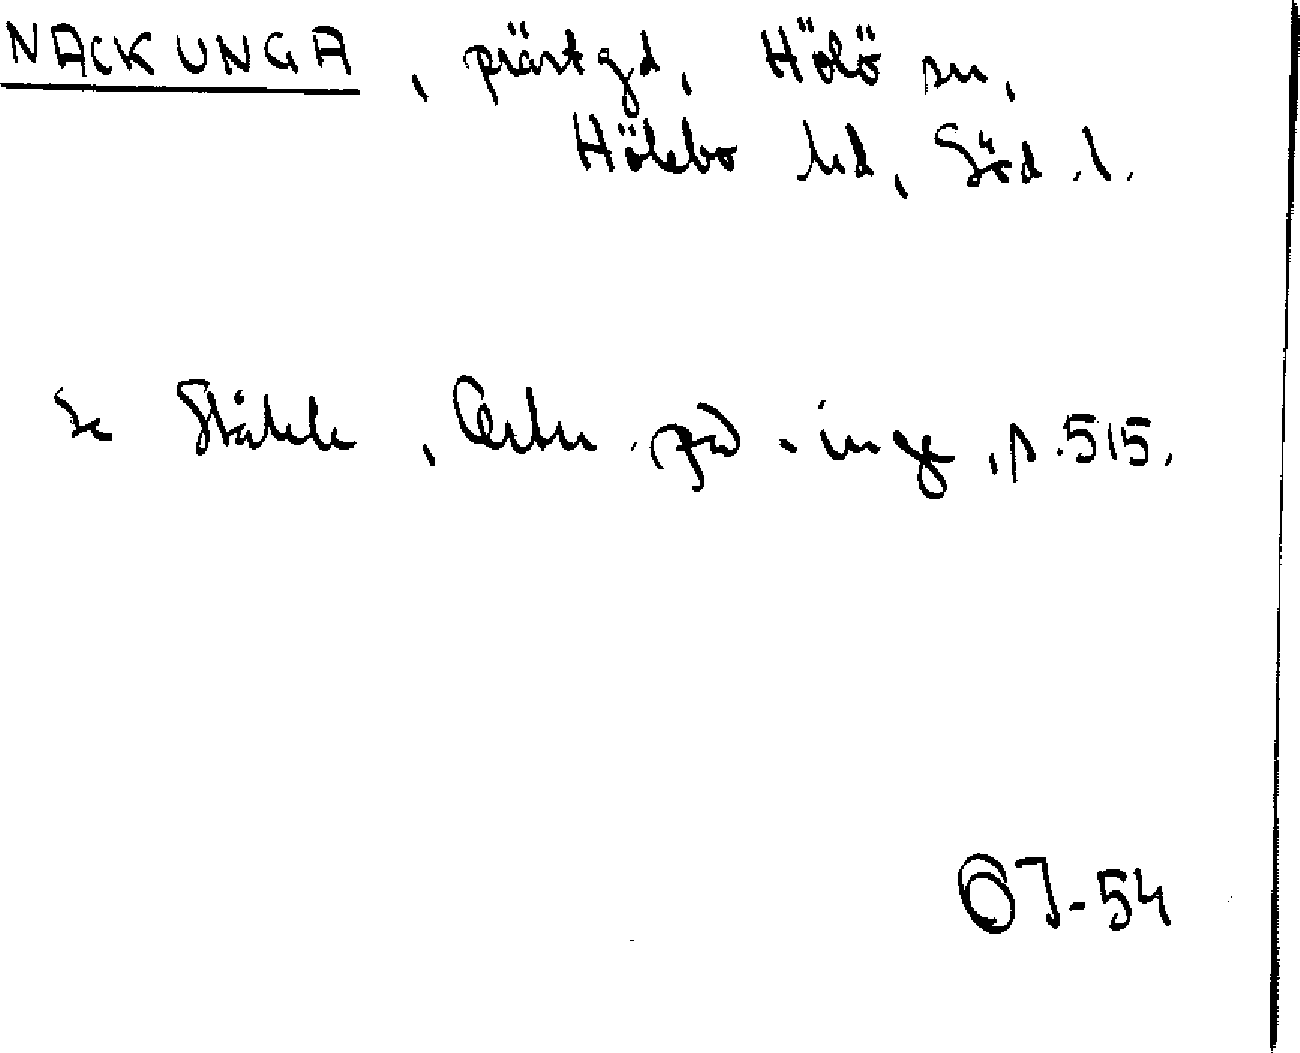 NACKUNGA, prästgd, Hölö sn,
Hölebo hd, Söd. l.
Se Ståhle, Ortn. på -inge, s. 515.
OJ-54